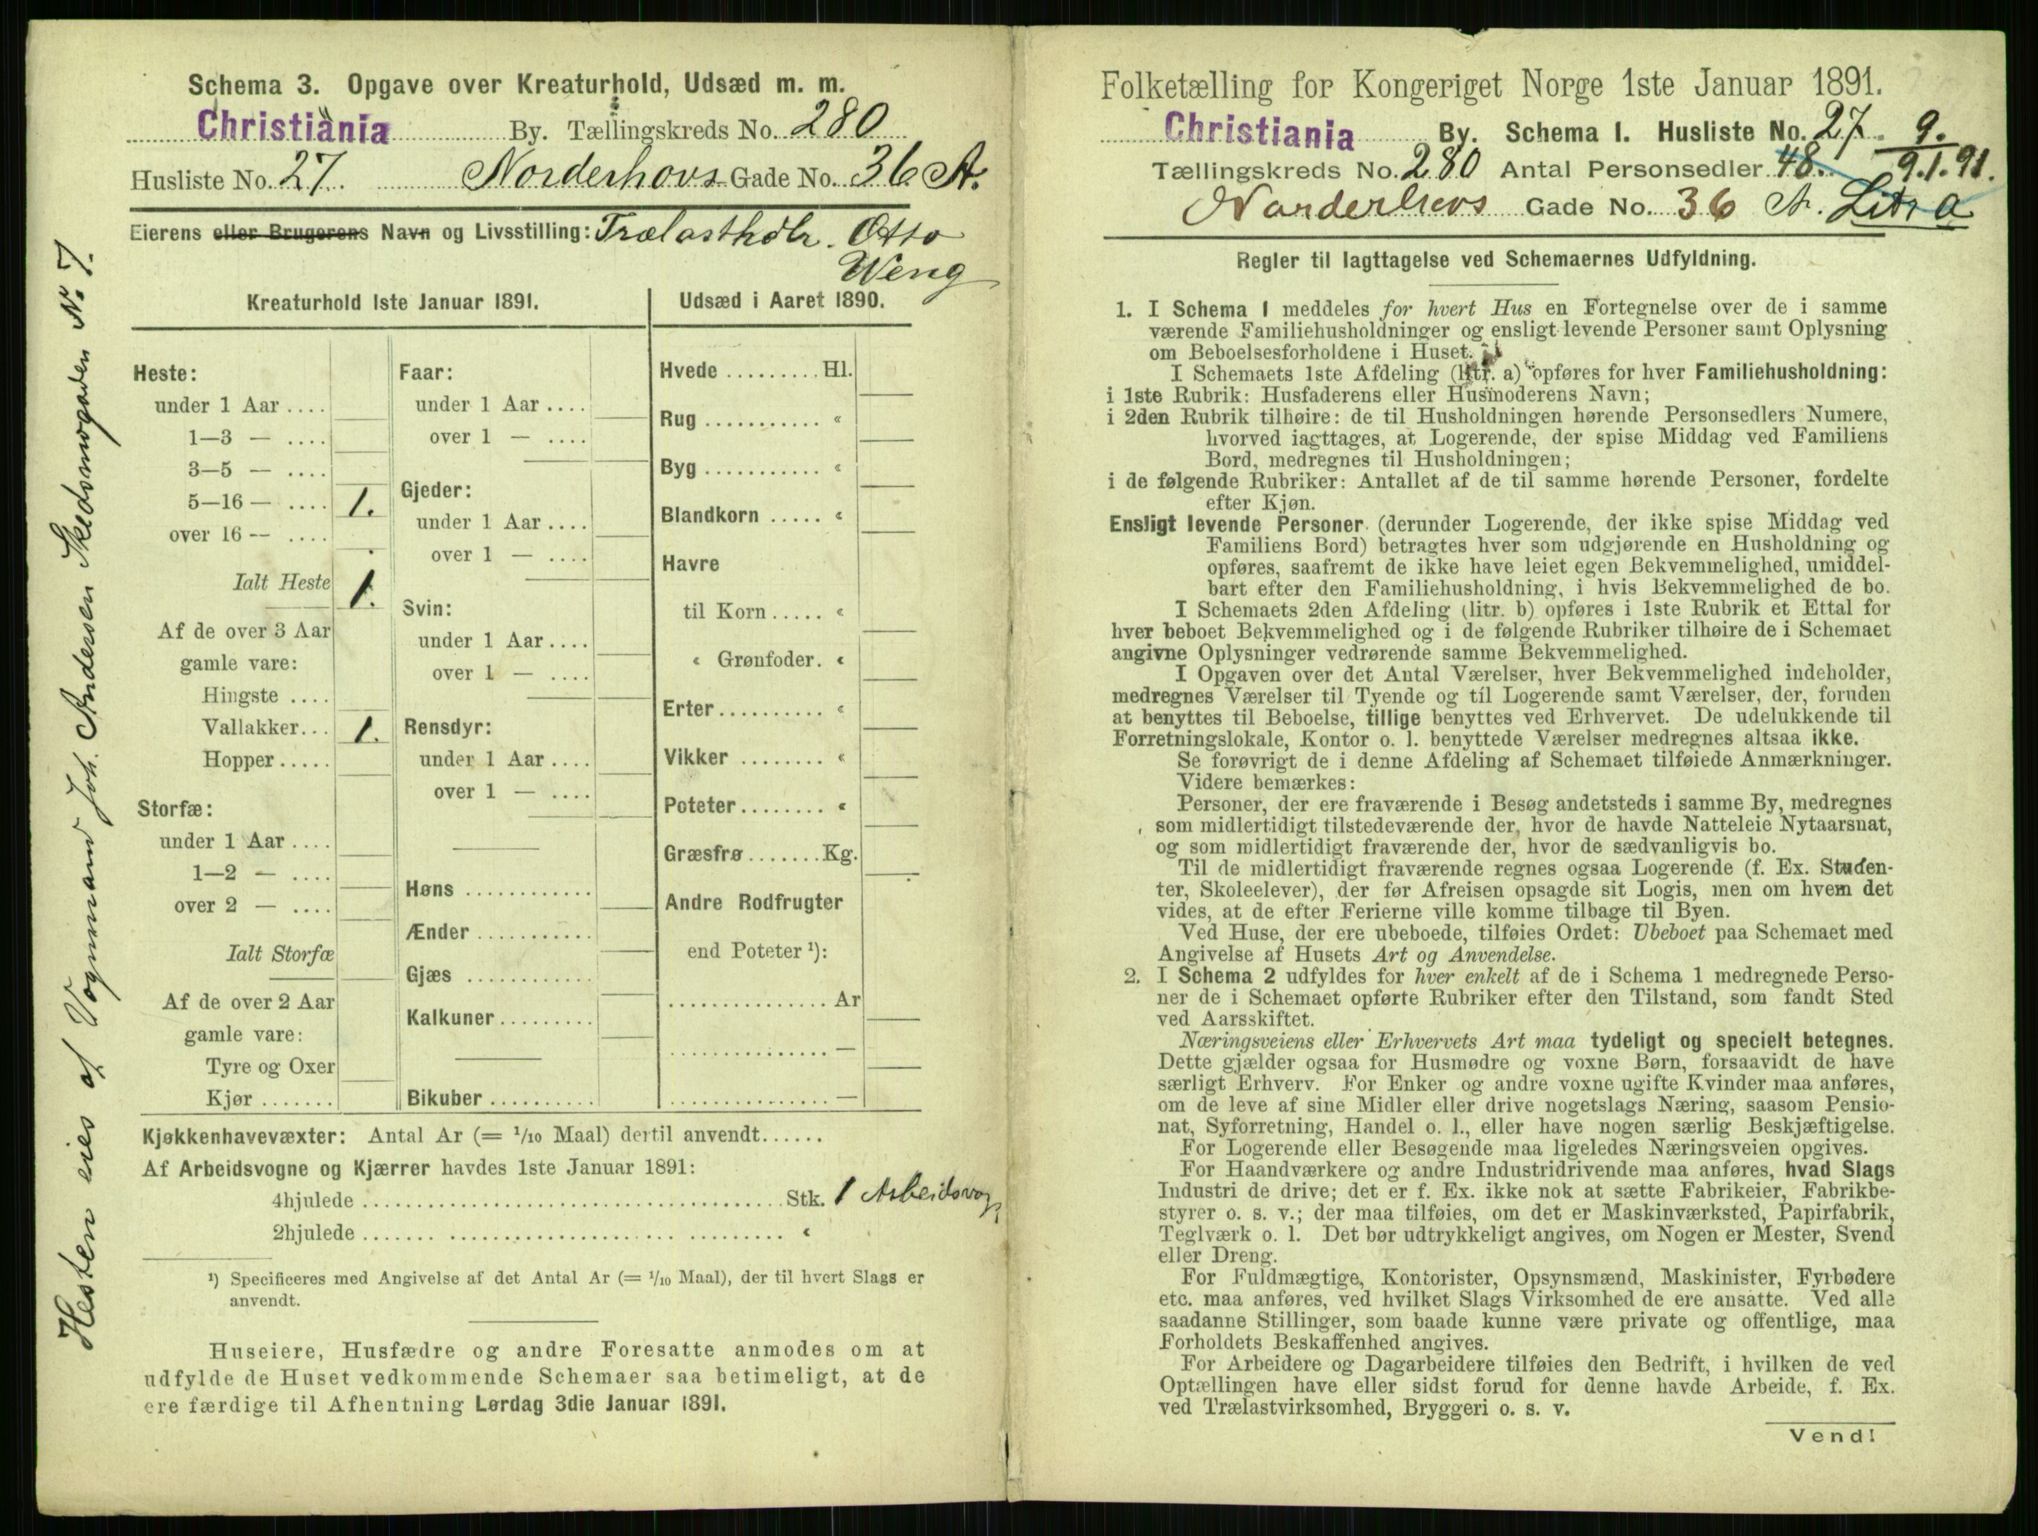 Schema 3. Opgave over Kreaturhold, Udsæd m. m.
Christiania By. Tællingskreds No. 280
Husliste No. 27. Norderhovs Gade No. 36 A.
Eierens eller Brugerens Navn og Livsstilling: Trælasthdlr. Otto
Weng
Kreaturhold 1ste Januar 1891.
Heste:
under 1 Aar ....
1—3 — ....
3—5 — ....
5—16 — .... 1.
over 16 — ....
Ialt Heste 1.
Af de over 3 Aar
gamle vare:
Hingste ....
Vallakker... 1.
Hopper.....
Storfæ:
under 1 Aar ....
1—2 — ....
over 2 — ....
Ialt Storfæ
Af de over 2 Aar
gamle vare:
Tyre og Oxer
Kjør.......
Faar:
under 1 Aar ....
over 1 — ....
Gjeder:
under 1 Aar ....
over 1 — ....
Svin:
under 1 Aar ....
over 1 — ....
Rensdyr:
under 1 Aar ....
over 1 — ....
Høns ............
Ænder ...........
Gjæs ............
Kalkuner.........
Bikuber ..........
Udsæd i Aaret 1890.
Hvede ......... Hl.
Rug ........... «
Byg ........... «
Blandkorn ..... «
Havre
til Korn..... «
« Grønfoder. «
Erter.......... «
Vikker ........ «
Poteter........ «
Græsfrø.......Kg.
Andre Rodfrugter
end Poteter ¹):
............... Ar
............... —
............... —
Kjøkkenhavevæxter: Antal Ar (= 1/10 Maal) dertil anvendt......
Af Arbeidsvogne og Kjærrer havdes 1ste Januar 1891:
4hjulede ..................................... Stk. 1 Arbeidsvogn
2hjulede ..................................... «
¹) Specificeres med Angivelse af det Antal Ar (= 1/10 Maal), der til hvert Slags er
anvendt.
Huseiere, Husfædre og andre Foresatte anmodes om at
udfylde de Huset vedkommende Schemaer saa betimeligt, at de
ere færdige til Afhentning Lørdag 3die Januar 1891.
Hesten eies af Vognmand Joh. Andersen Skedsmogaden No. 7.
Folketælling for Kongeriget Norge 1ste Januar 1891.
Christiania By. Schema 1. Husliste No. 27. 9.
Tællingskreds No. 280 Antal Personsedler 48. 9.1.91.
Norderhovs Gade No. 36 A. Litra a
Regler til Iagttagelse ved Schemaernes Udfyldning.
1. I Schema 1 meddeles for hvert Hus en Fortegnelse over de i samme
værende Familiehusholdninger og ensligt levende Personer samt Oplysning
om Beboelsesforholdene i Huset.
I Schemaets 1ste Afdeling (litr. a) opføres for hver Familiehusholdning:
i 1ste Rubrik: Husfaderens eller Husmoderens Navn;
i 2den Rubrik tilhøire: de til Husholdningen hørende Personsedlers Numere,
hvorved iagttages, at Logerende, der spise Middag ved Familiens
Bord, medregnes til Husholdningen;
i de følgende Rubriker: Antallet af de til samme hørende Personer, fordelte
efter Kjøn.
Ensligt levende Personer (derunder Logerende, der ikke spise Middag ved
Familiens Bord) betragtes hver som udgjørende en Husholdning og
opføres, saafremt de ikke have leiet egen Bekvemmelighed, umiddel-
bart efter den Familiehusholdning, i hvis Bekvemmelighed de bo.
I Schemaets 2den Afdeling (litr. b) opføres i 1ste Rubrik et Ettal for
hver beboet Bekvemmelighed og i de følgende Rubriker tilhøire de i Schemaet
angivne Oplysninger vedrørende samme Bekvemmelighed.
I Opgaven over det Antal Værelser, hver Bekvemmelighed indeholder,
medregnes Værelser til Tyende og til Logerende samt Værelser, der, foruden
at benyttes til Beboelse, tillige benyttes ved Erhvervet. De udelukkende til
Forretningslokale, Kontor o. l. benyttede Værelser medregnes altsaa ikke.
Se forøvrigt de i denne Afdeling af Schemaet tilføiede Anmærkninger.
Videre bemærkes:
Personer, der ere fraværende i Besøg andetsteds i samme By, medregnes
som midlertidigt tilstedeværende der, hvor de havde Natteleie Nytaarsnat,
og som midlertidigt fraværende der, hvor de sædvanligvis bo.
Til de midlertidigt fraværende regnes ogsaa Logerende (f. Ex. Studen-
ter, Skoleelever), der før Afreisen opsagde sit Logis, men om hvem det
vides, at de efter Ferierne ville komme tilbage til Byen.
Ved Huse, der ere ubeboede, tilføies Ordet: Ubeboet paa Schemaet med
Angivelse af Husets Art og Anvendelse.
2. I Schema 2 udfyldes for hver enkelt af de i Schema 1 medregnede Perso-
ner de i Schemaet opførte Rubriker efter den Tilstand, som fandt Sted
ved Aarsskiftet.
Næringsveiens eller Erhvervets Art maa tydeligt og specielt betegnes.
Dette gjælder ogsaa for Husmødre og voxne Børn, forsaavidt de have
særligt Erhverv. For Enker og andre voxne ugifte Kvinder maa anføres,
om de leve af sine Midler eller drive nogetslags Næring, saasom Pensio-
nat, Syforretning, Handel o. l., eller have nogen særlig Beskjæftigelse.
For Logerende eller Besøgende maa ligeledes Næringsveien opgives.
For Haandværkere og andre Industridrivende maa anføres, hvad Slags
Industri de drive; det er f. Ex. ikke nok at sætte Fabrikeier, Fabrikbe-
styrer o. s. v.; der maa tilføies, om det er Maskinværksted, Papirfabrik,
Teglværk o. l. Det bør udtrykkeligt angives, om Nogen er Mester, Svend
eller Dreng.
For Fuldmægtige, Kontorister, Opsynsmænd, Maskinister, Fyrbødere
etc. maa anføres, ved hvilket Slags Virksomhed de ere ansatte. Ved alle
saadanne Stillinger, som baade kunne være private og offentlige, maa
Forholdets Beskaffenhed angives.
For Arbeidere og Dagarbeidere tilføies den Bedrift, i hvilken de ved
Optællingen have eller sidst forud for denne havde Arbeide, f. Ex.
ved Trælastvirksomhed, Bryggeri o. s. v.
Vend!